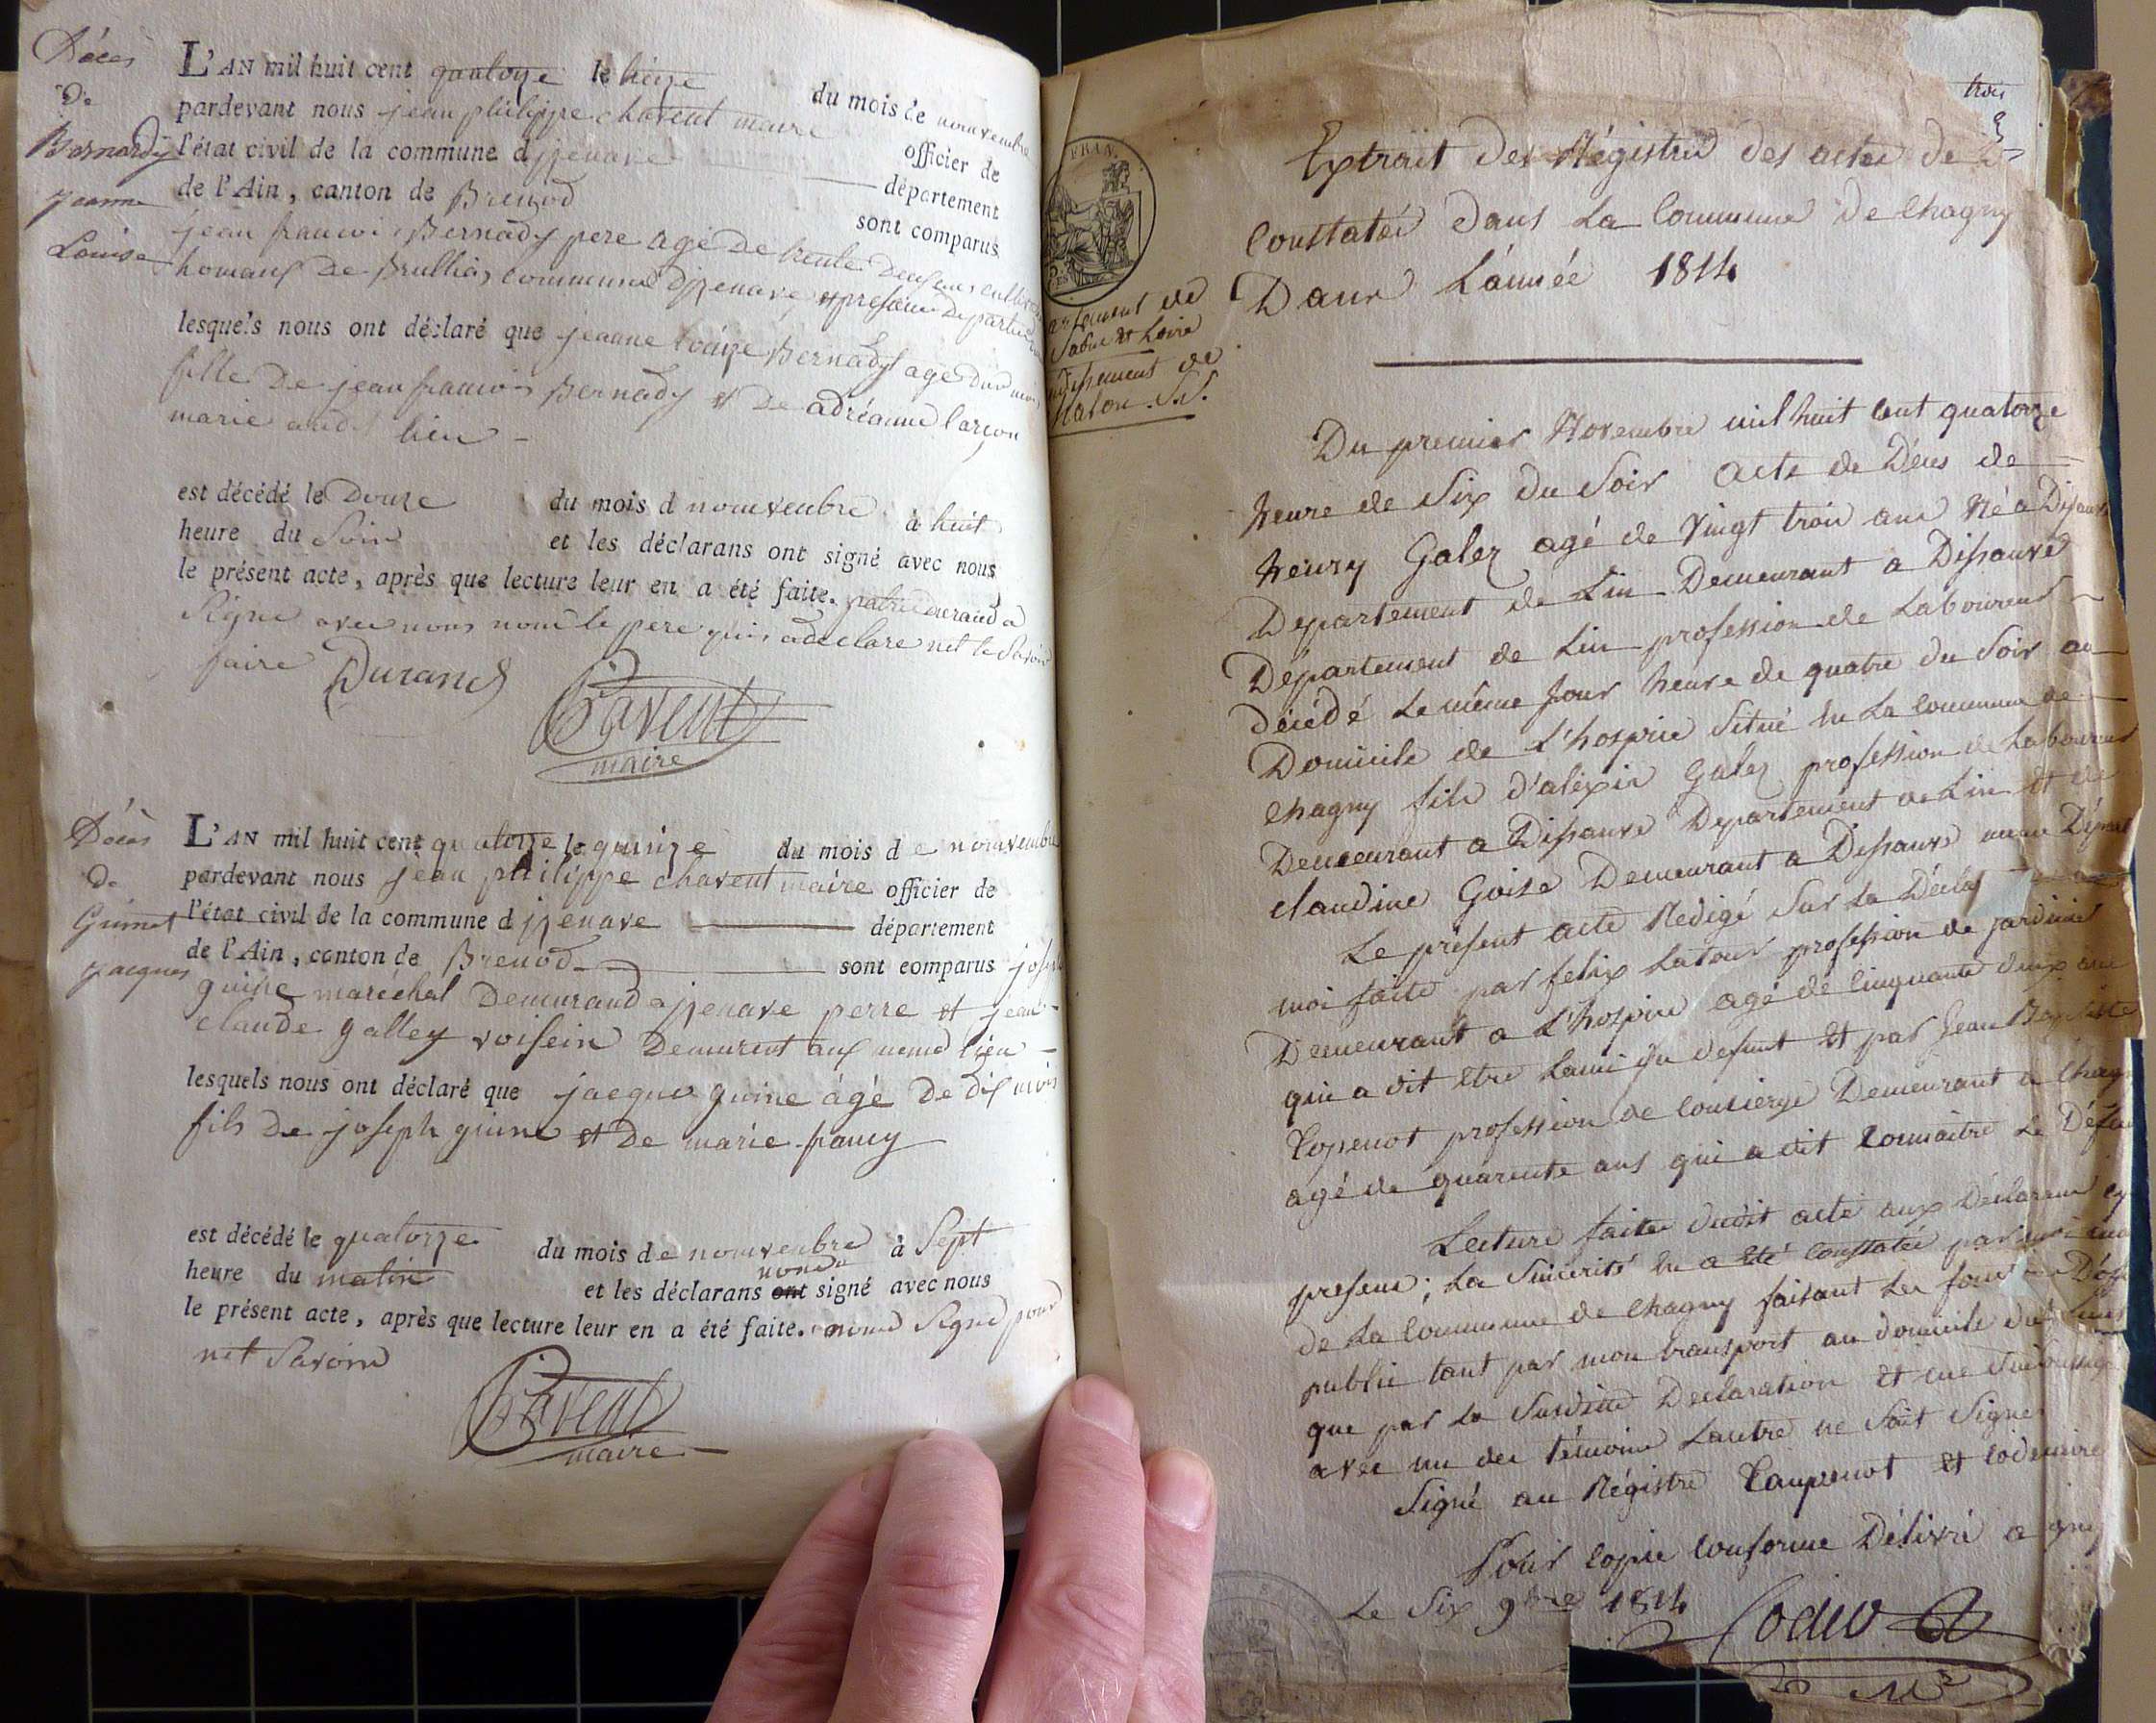 Décès
de
Bernardy
jeanne
Louise
L'AN mil huit cent quatorze le treize du mois de nomvembre
pardevant nous jean philippe chavent maire officier de
l'état civil de la commune d izenave département
de l'Ain, canton de Brenod sont comparus
jean francois Bernady pere agé de trente deux ans
commune dizenave
lesquels nous ont déclaré que jeanne loüize Bernady agé dun mois
fille de jean francois Bernady et de adréanne larçon
marie audit lieu
est décédé le Douze du mois d nomvembre à huit
heure du Soir et les déclarans ont signé avec nous
le présent acte, après que lecture leur en a été faite.
Signe avec nous nom le pere qui a declare net le Savoir
faire
Durand
Chavent
maire
Décès
de
Guinet
jacques
L'AN mil huit cent quatorze le quinze du mois d e nomvembre
pardevant nous jean philippe chavent maire officier de
l'état civil de la commune d izenave département
de l'Ain, canton de Brenod sont comparus joseph
guine maréchal Demeurand a izenave perre et jean
claude galley voisein Demurent aux meme lieu
lesquels nous ont déclaré que jacque guine âgé De dix mois
fils de joseph guine et de marie francy
est décédé le quatorze du mois de nomvembre à Sept
heure du matin et les déclarans ont nomd signé avec nous
le présent acte, après que lecture leur en a été faite. nomd Signé pour
net Savoire
Chavent
maire
trois
3
FRAN
Saône et Loire
Extrait des Régistres des actes de
Constatés Dans La Commune De Chagny
Dans L'année 1814
Du premier Novembre mil huit Cent quatorze
heure de Six du Soir acte de Décès de
henry Galez agé de Vingt trois ans Né a
Département de Lin Demeurant a Dissauve
Département de Lin profession de Laboureur
décédé Le même Jour heure de quatre du Soir au
Domicile de L'hospice Situé En La Commune de
Chagny fils d'alexis Galez profession de Laboureur
Demeurant a Dissauve Departement de Lin et de
claudine Goise Demeurant a Dissauve
Le présent acte Redigé Sur La
moi faite par felix Latour profession de jardinier
Demeurant a L'hospice agé de Cinquante deux ans
qui a dit être Lami du defunt et par Jean Baptiste
Topenot profession de Concierge Demeurant a
agé de quarente ans qui a dit Connaitre Le
Lecture faite dudit acte aux Déclarans
presens; La Sincerité En a été Constatée par
de La Commune de Chagny faisant Les
public tant par mon transport au domicile
que par La Susditte Declaration et
avec un des témoins Lautre ne Sait Signer
Signé au Régistre Taupenot et
Pour Copie Conforme Délivré a
Le Six 9bre 1814